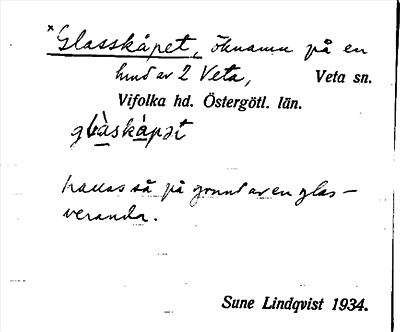 *Glasskåpet, öknamn på en
hus av 2 Veta, Veta sn.
Vifolka hd. Östergötl. län.
glàskåpət
kallas så på grund av en glas-
veranda.
Sune Lindqvist 1934.